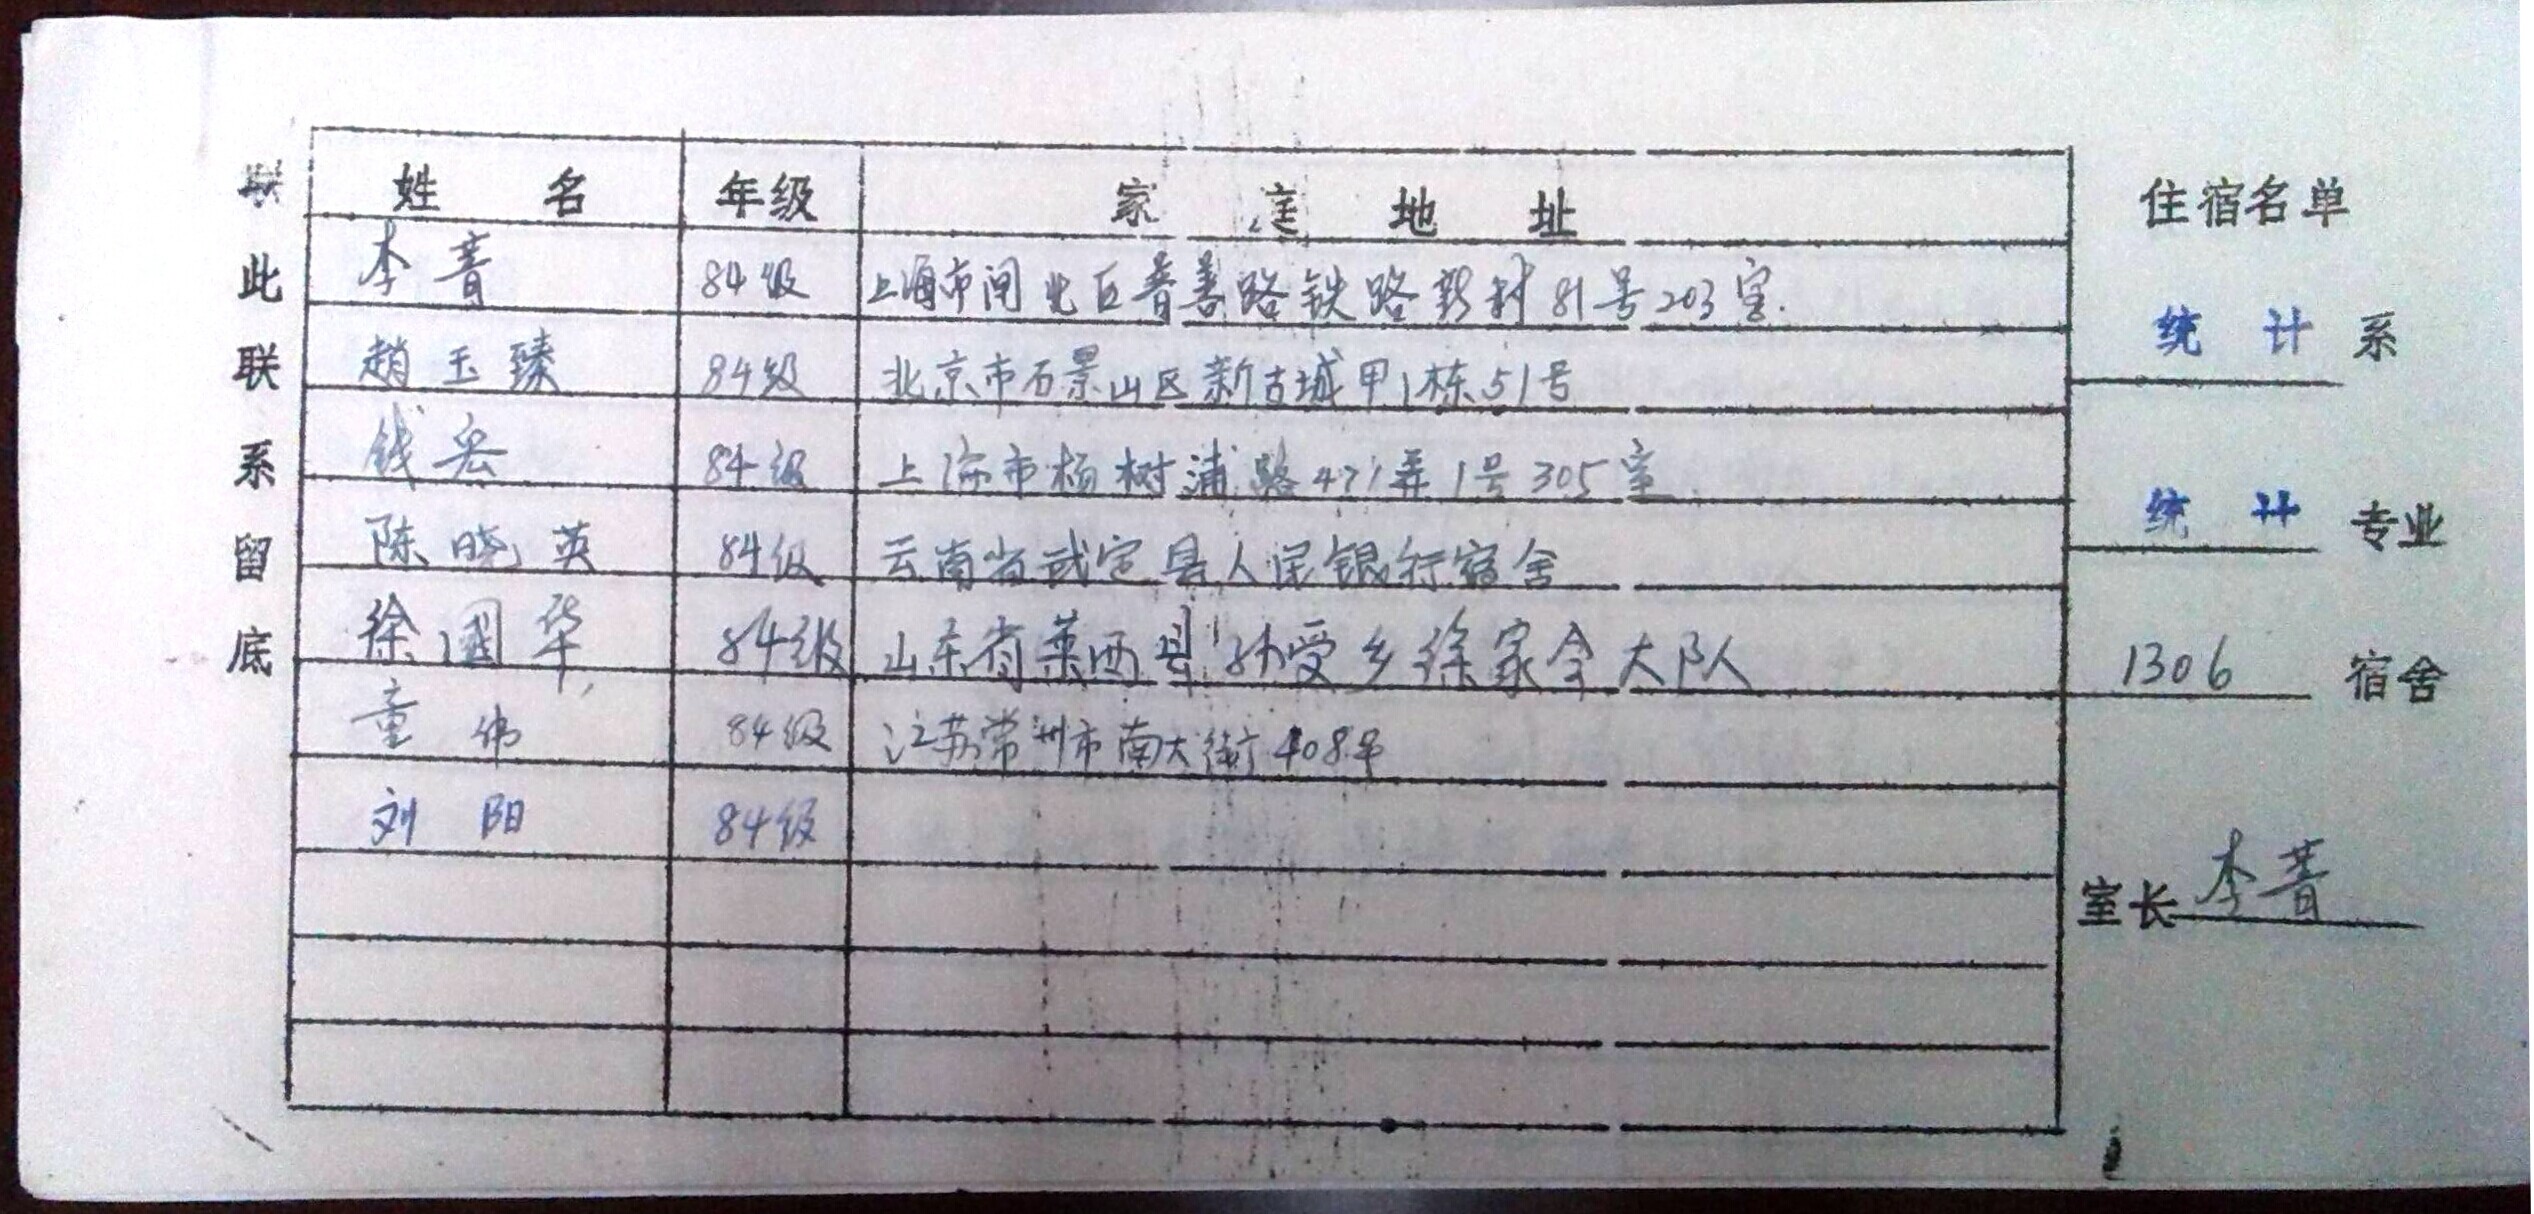 联
此
联
系
留
底
姓 名 年级 家 庭 地 址
李菁 84级 上海市闸北区普善路铁路新村81号203室.
趙玉臻 84级 北京市石景山区新古城甲1栋51号
钱宏 84级 上海市杨树浦路471弄1号305室.
陈晓英 84级 云南省武定县人民银行宿舍
徐國华 84级 山东省莱西县孙受乡徐家会大队
童伟 84级 江苏常州市南大街408号
刘阳 84级
住宿名单
统计系
统计专业
1306 宿舍
室长 李菁